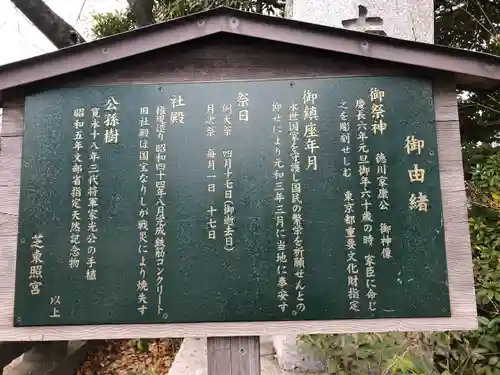 御由緒
御祭神　徳川家康公　御神像
慶長六年元旦御年六十歳の時　家臣に命じ
之を彫刻せしむ　東京都重要文化財指定
御鎮座年月
永世国家を守護し国民の繁栄を祈願せんとの
仰せにより元和三年三月に当地に奉安す
祭日
例大祭　四月十七日(御逝去日)
月次祭　毎月一日　十七日
社殿
権現造り　昭和四十四年八月完成　鉄筋コンクリート
旧社殿は国宝なりしが戦災により焼失す
公孫樹
寛永十八年三代将軍家光公の手植
昭和五年文部省指定天然記念物
以上
芝東照宮